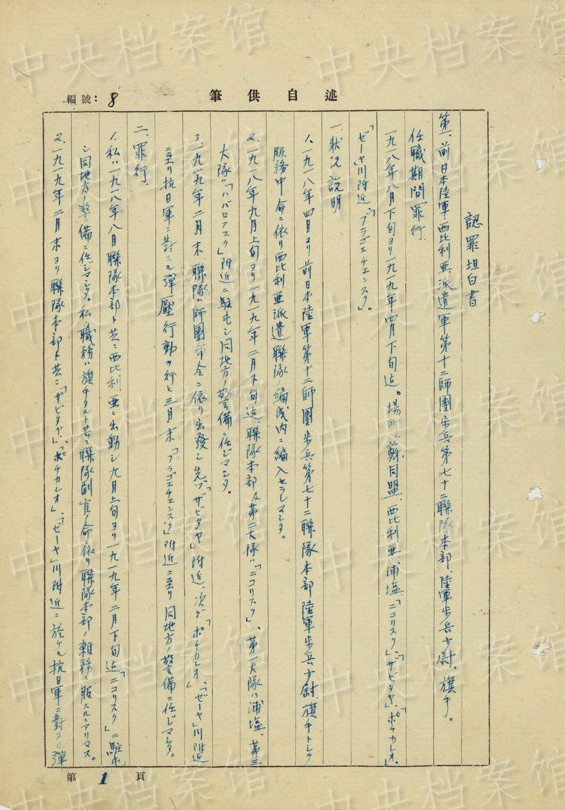 編號：8
述自供筆
認罪坦白書
第一、前日本陸軍西比利亜派遣軍第十二師團步兵第七十二聯隊本部、陸軍步兵少尉、旗手。
任職期間罪行
一九一八年八月下旬ヨリ一九一九年四月下旬迄。場所ハ蘇同盟、西比利亜浦塩、「ニコリスク」、「ザビタヤ」、「ポチカレオ」、
「ゼーヤ」川附近「ブラゴエチエンスク」。
一、狀況説明
1、一九一八年四月ヨリ前日本陸軍第十二師團步兵第七十二聯隊本部陸軍步兵少尉旗手トシテ
服務中命ニ依リ西比利亜派遣聯隊ノ編成内ニ編入セラレマシタ。
2、一九一八年九月上旬ヨリ一九一九年二月下旬迄聯隊本部及第二大隊ハ「ニコリスク」、第一大隊ハ浦塩、第三
大隊ハ「ハバロフスク」附近ニ駐屯シ同地方ノ警備ニ任ジマシタ。
3、一九一九年二月末聯隊ハ師團命令ニ依リ出發シ先ヅ「ザビタヤ」附近、次デ「ポチカレオ」、「ゼーヤ」川附近
ニ至リ抗日軍ニ對スル彈壓行動ヲ行ヒ三月末「ブラゴエチエンスク」附近ニ至リ同地方ノ警備ニ任ジマシタ。
二、罪行、
1、私ハ一九一八年八月聯隊本部ト共ニ西比利亜ニ出動シ九月上旬ヨリ一九一九年二月下旬迄「ニコリスク」ニ駐屯
シ同地方ノ警備ニ任ジマシタ。私ノ職務ハ旗手タルト共ニ聯隊副官ノ命ニ依リ聯隊本部ノ雜務ニ服スルニアリマス。
2、一九一九年二月末ヨリ聯隊本部ト共ニ「ザビタヤ」、「ポチカレオ」、「ゼーヤ」川附近ニ於ケル抗日軍ニ對スル彈
第1頁
中央档案馆